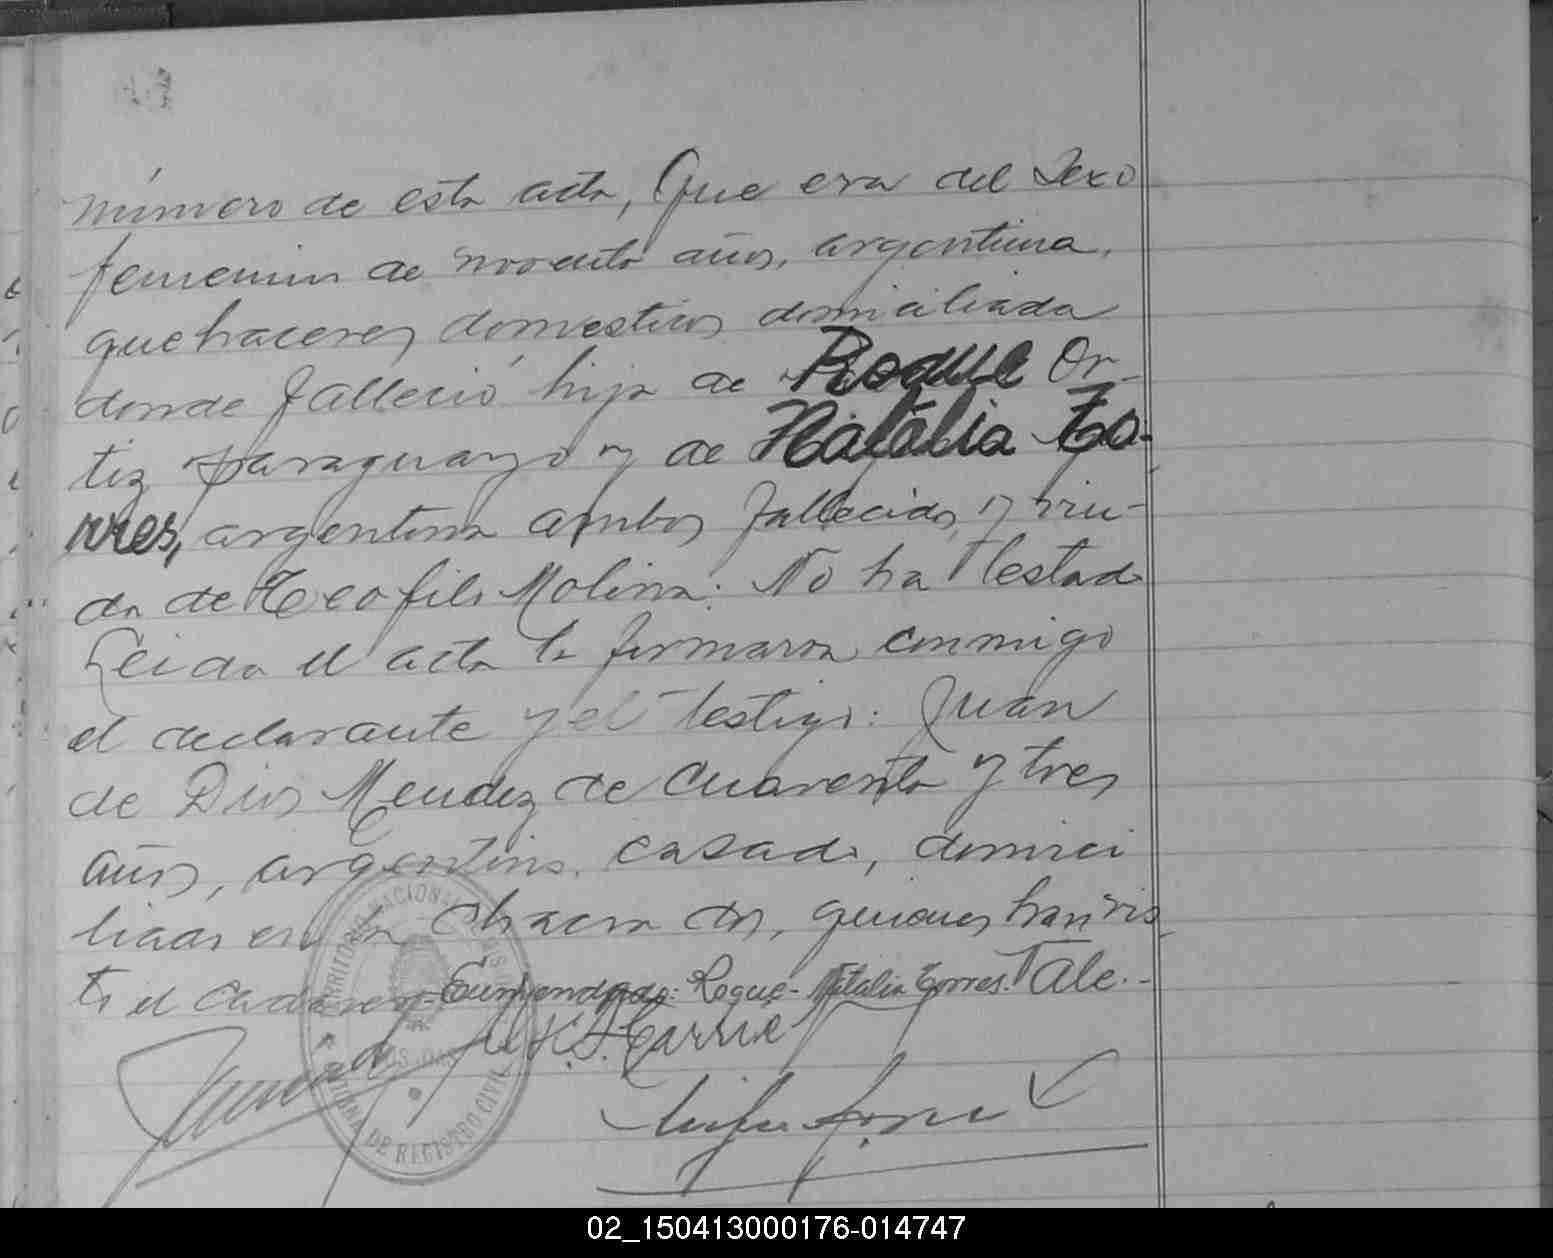 número de esta acta, Que era del Sexo
femenino de noventa años, argentina,
quehaceres domesticos domiciliada
donde falleció hija de Roque Or-
tiz paraguayo y de Natalia To-
rres, argentina ambos fallecidos, y viu-
da de Teofilo Molina. No ha testado
Leida el acta la firmaron conmigo
el declarante y el testigo: Juan
de Dios Mendez de cuarenta y tres
años, argentino, casado, domici
liado en la Chacra dos, quienes han vis
to el cadaver.- Enmendado: Roque- Natalia Torres. Vale.-
TERRITORIO NACIONAL
POSADAS
OFICINA DE REGISTRO CIVIL
02_150413000176-014747